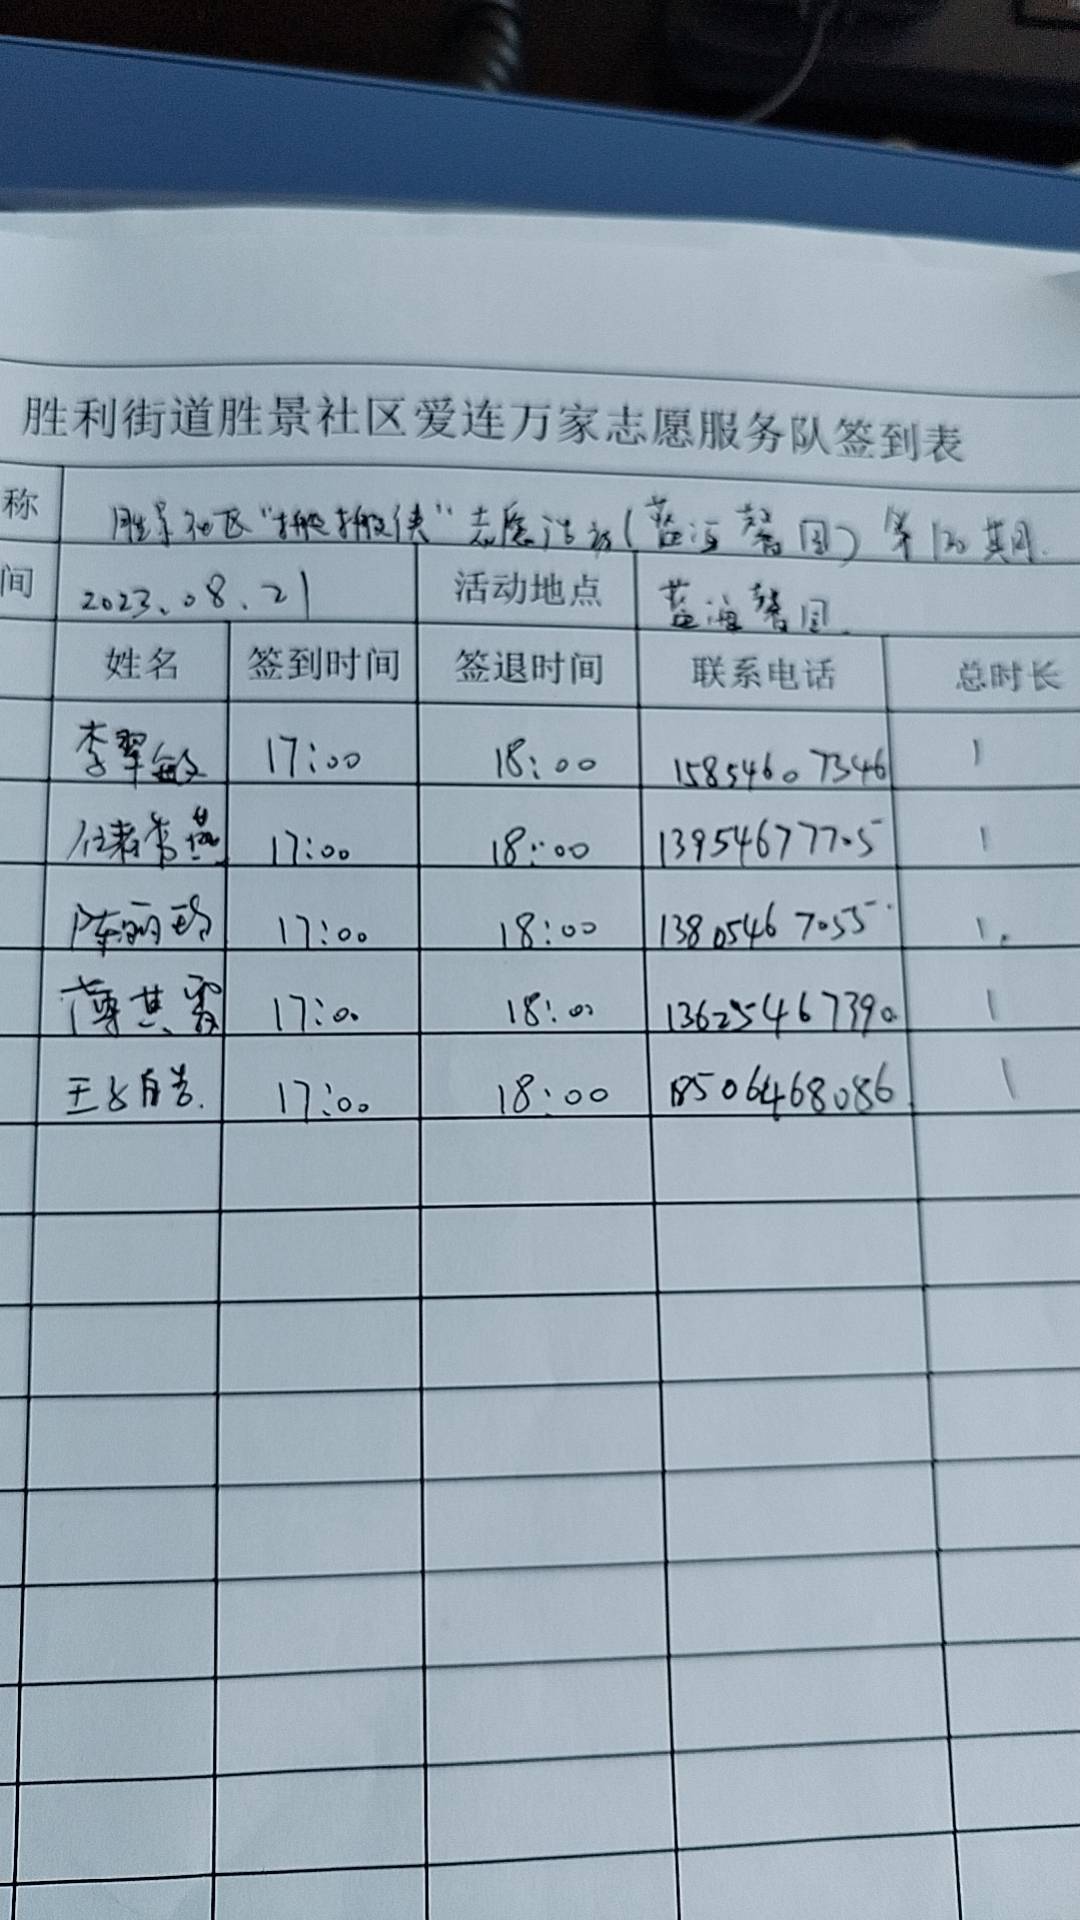 胜利街道胜景社区爱连万家志愿服务队签到表
称 胜景社区“搬搬侠”志愿活动(蓝海馨园)第120期.
间 2023.08.21 活动地点 蓝海馨园.
姓名 签到时间 签退时间 联系电话 总时长
李翠敏 17:00 18:00 15854607346 1
17:00 18:00 13954677705 1
陈丽玲 17:00 18:00 13805467055 1.
薄其霞 17:00 18:00 13625467390 1
王 17:00 18:00 18506468086 1